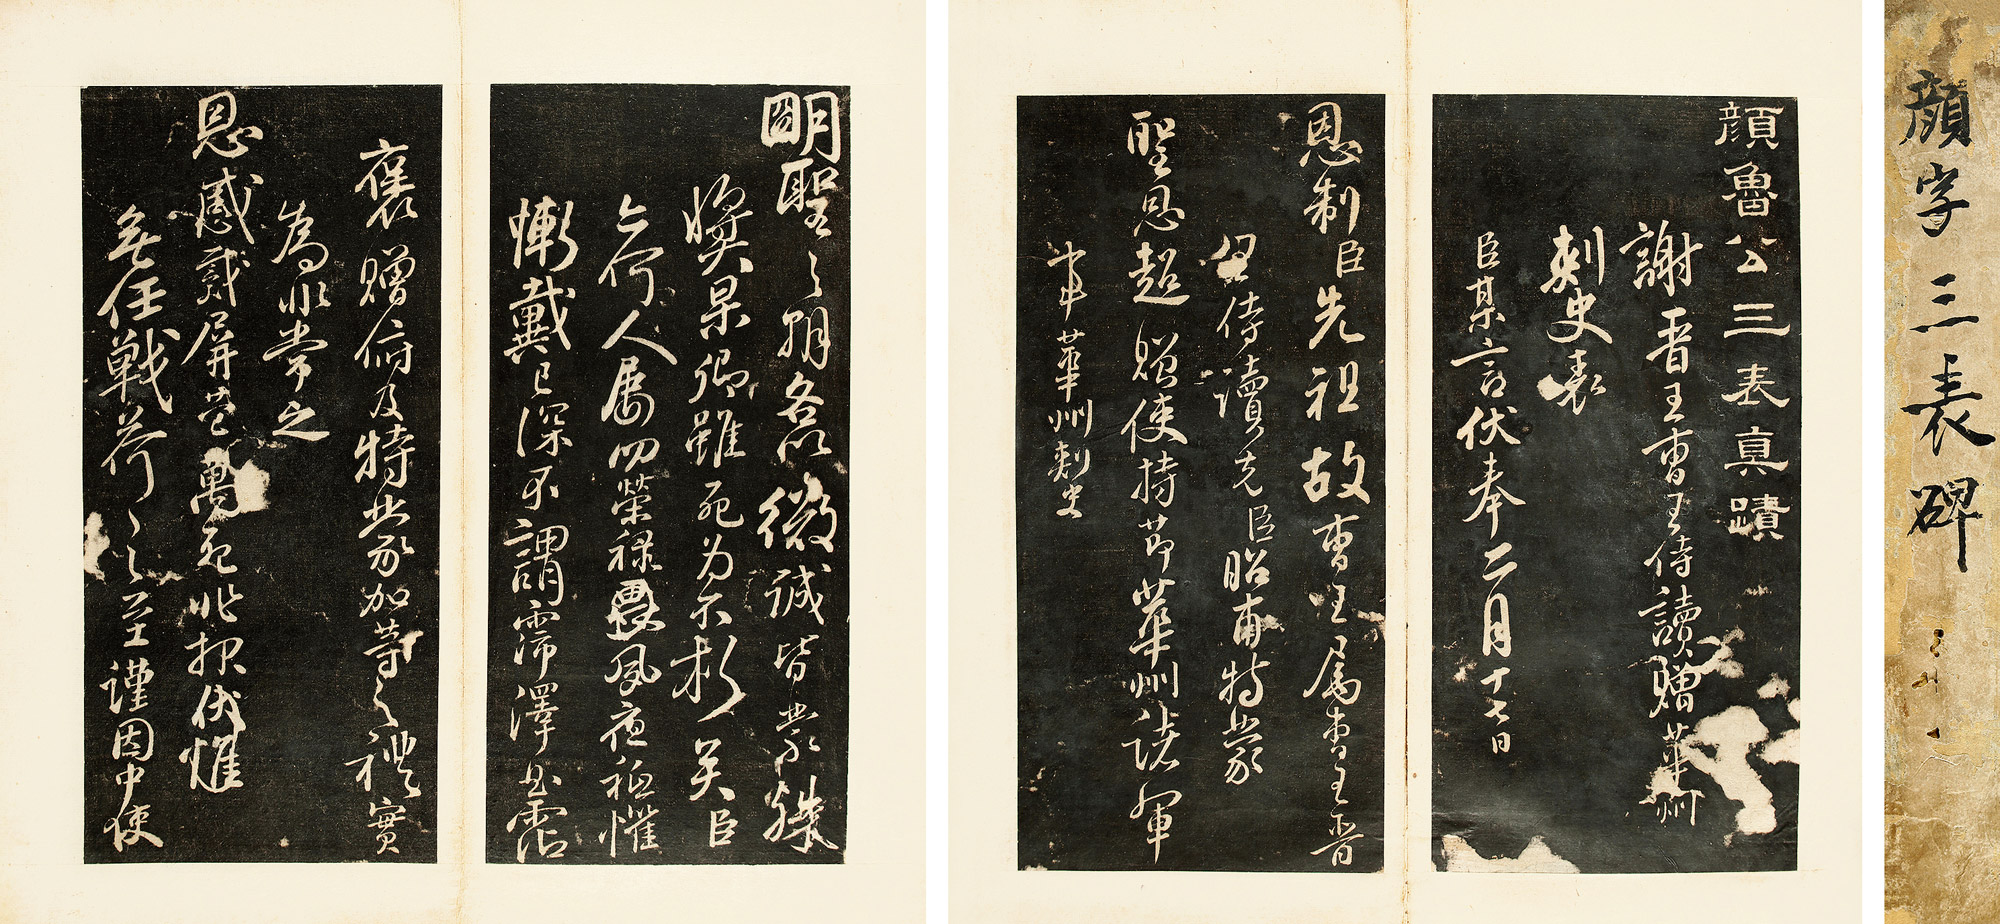 顔字三表碑
顏魯公三表真蹟
謝晋王曹王侍讀贈華州
刺史表
臣某言伏奉二月十七日
恩制臣先祖故曹王屬曹王晋
王侍讀先臣昭甫特蒙
聖恩超贈使持節華州諸軍
事華州刺史
明聖之朝各以微誠皆蒙殊
獎杲卿雖死為不朽矣臣
何人屬叨榮禄畏夙夜祗懼
慚戴已深不謂霈澤曲霑
褒贈俯及特蒙加等之禮實
為非常之
恩感戴屏營萬死非報伏惟
無任戰荷之至謹因中使